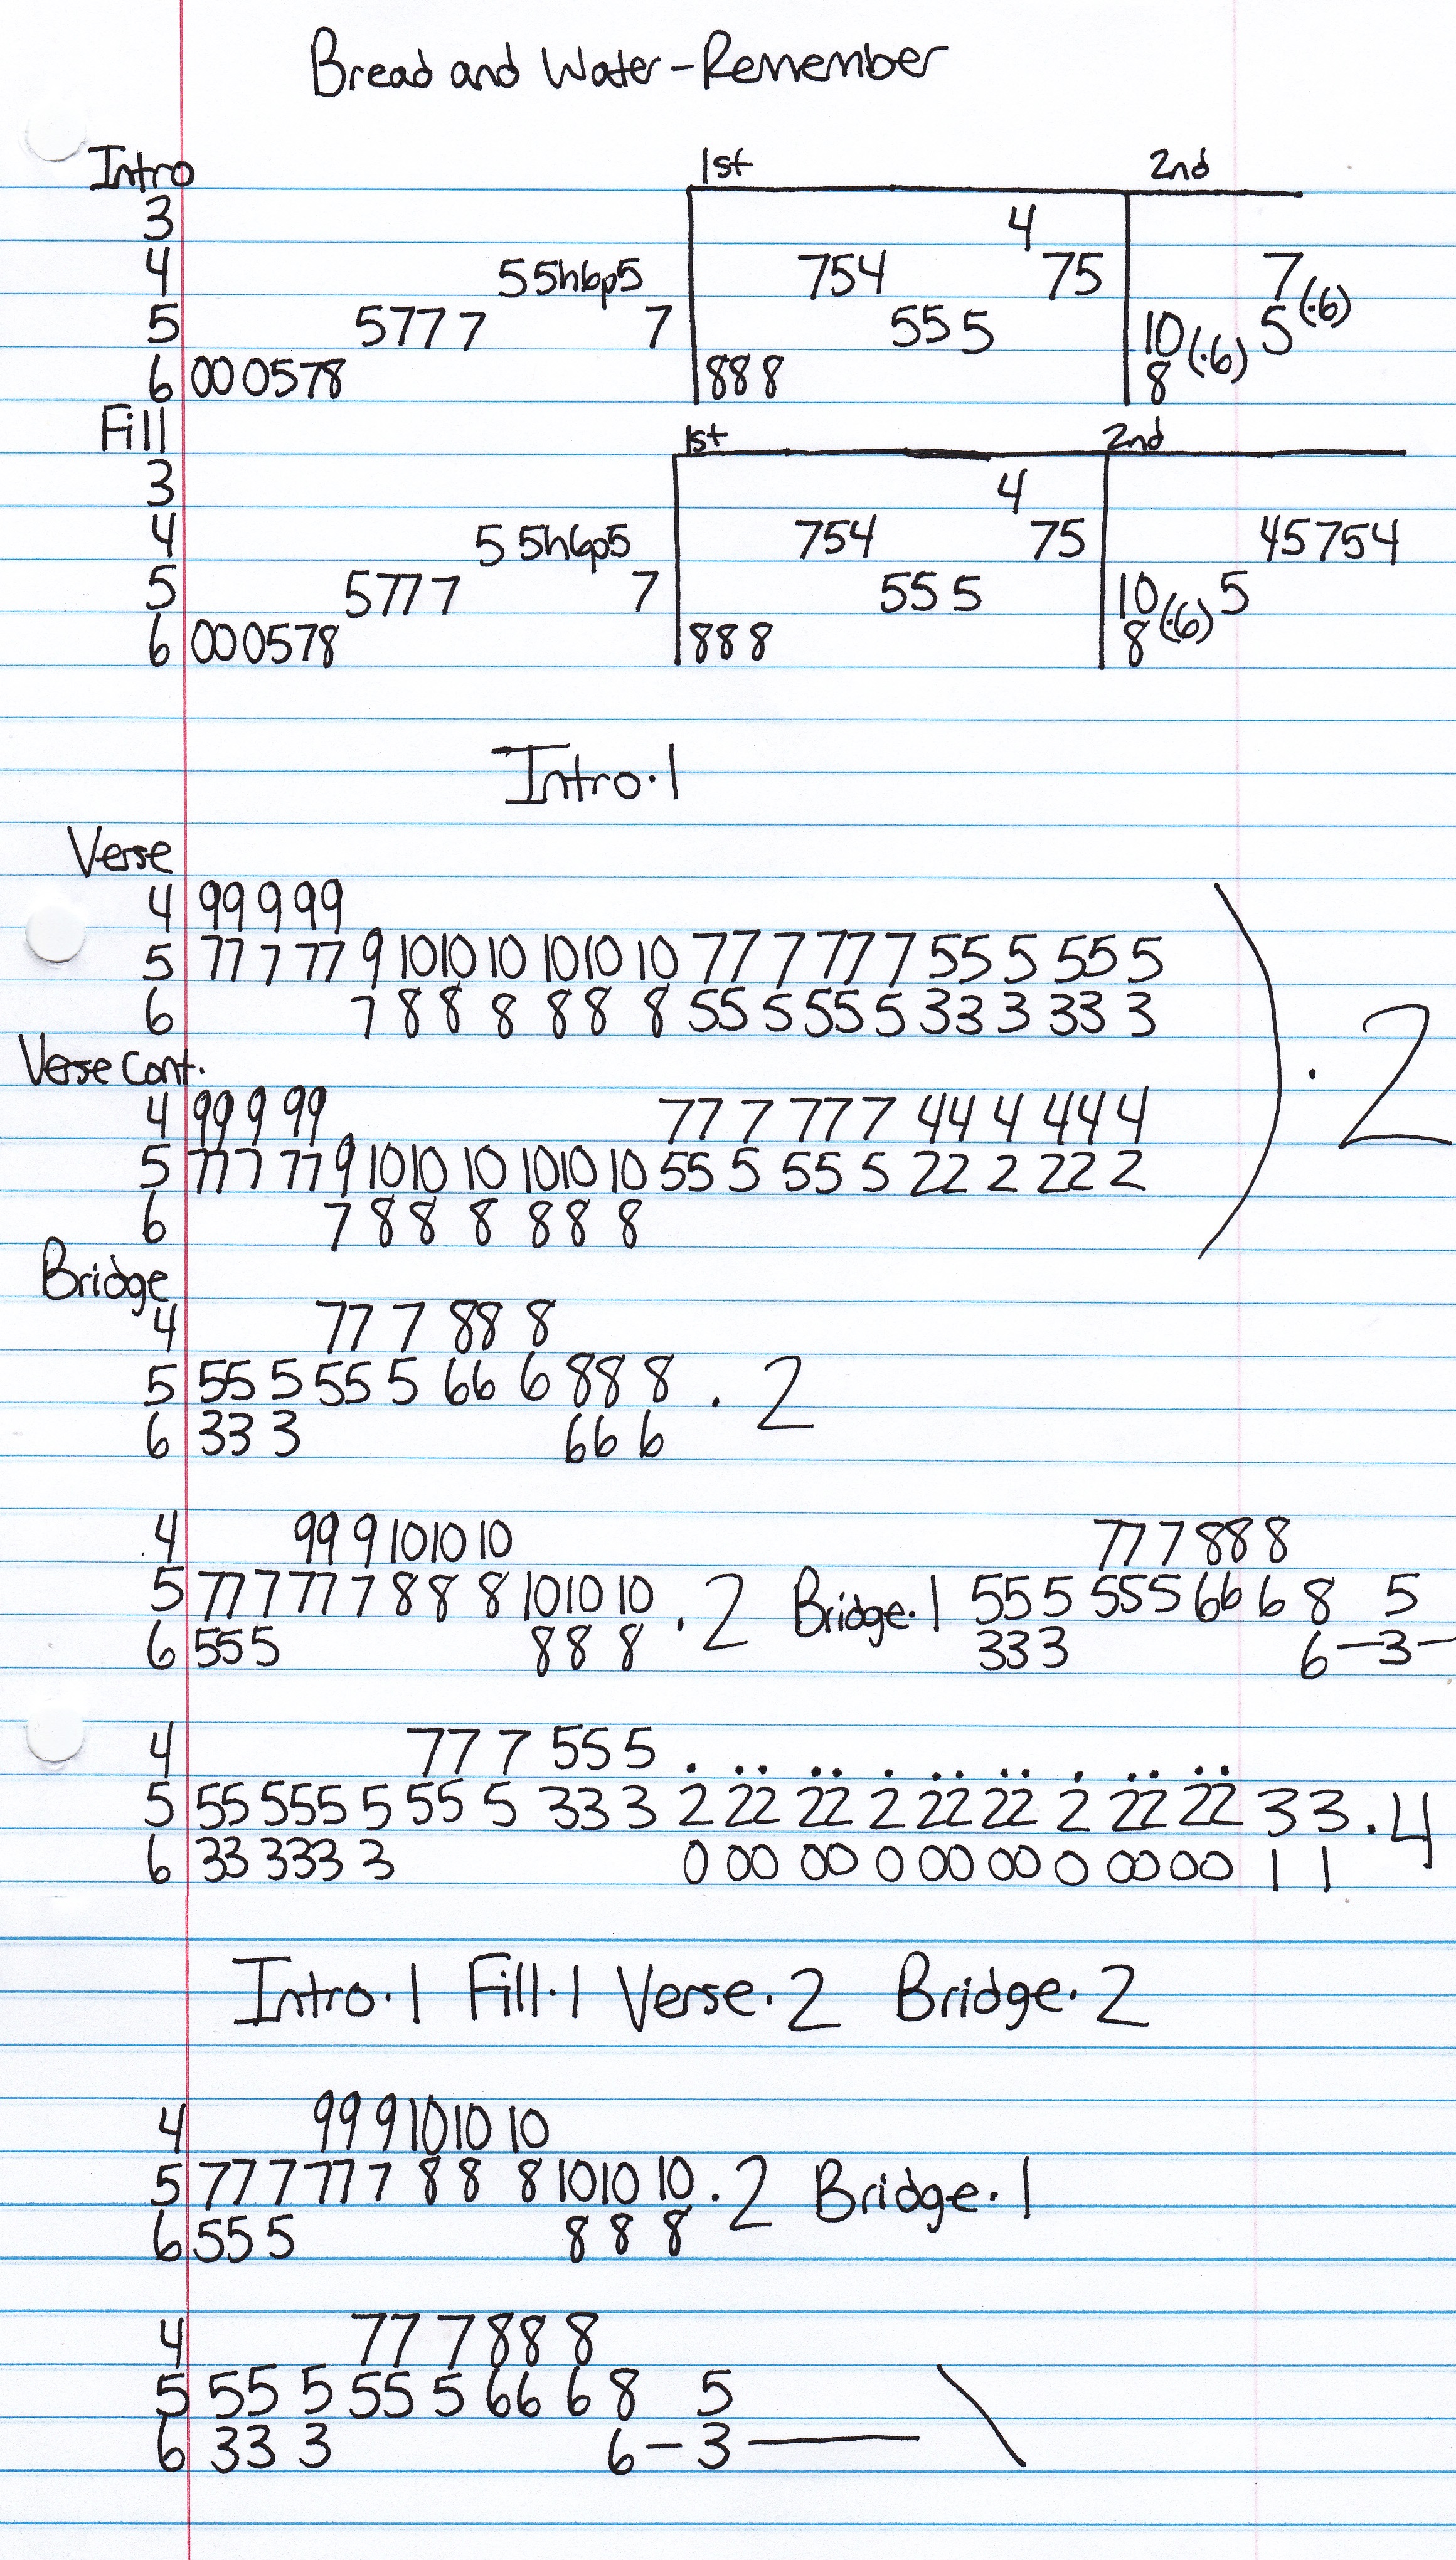 Bread and Water-Remember
Intro 1st 2nd
3 4
4 5 5h6p5 754 75 7(·6)
5 5777 7 555 10(·6) 5
6 000578 888 8
Fill 1st 2nd
3 4
4 5 5h6p5 754 75 45754
5 5777 7 555 10(·6) 5
6 000578 888 8
Intro·1
Verse
4 99 9 99
5 77 7 77 9 1010 10 1010 10 77 7 777 7 55 5 555 5
6 7 88 8 88 8 55 5 555 5 33 3 33 3
Verse Cont.
4 99 9 99 77 7 777 7 44 4 444 4
5 777 77 9 1010 10 1010 10 55 5 55 5 22 2 222 2
6 7 88 8 88 8
·2
Bridge
4 77 7 88 8
5 55 5 55 5 66 6 88 8 ·2
6 33 3 66 6
4 99 9 1010 10 77 7 88 8
5 77 7 77 7 8 8 8 1010 10 ·2 Bridge·1 55 5 555 66 6 8 5
6 555 88 8 333 6-3-
4 77 7 55 5 . .. .. . .. .. . .. ..
5 55 555 5 55 5 33 3 2 22 22 2 22 22 2 22 22 3 3 ·4
6 33 333 3 0 00 00 0 00 00 0 00 00 1 1
Intro·1 Fill·1 Verse·2 Bridge·2
4 99 9 1010 10
5 77 7 77 7 8 8 8 1010 10 ·2 Bridge·1
6 55 5 8 8 8
4 77 7 88 8
5 55 5 55 5 66 6 8 5
6 33 3 6-3—